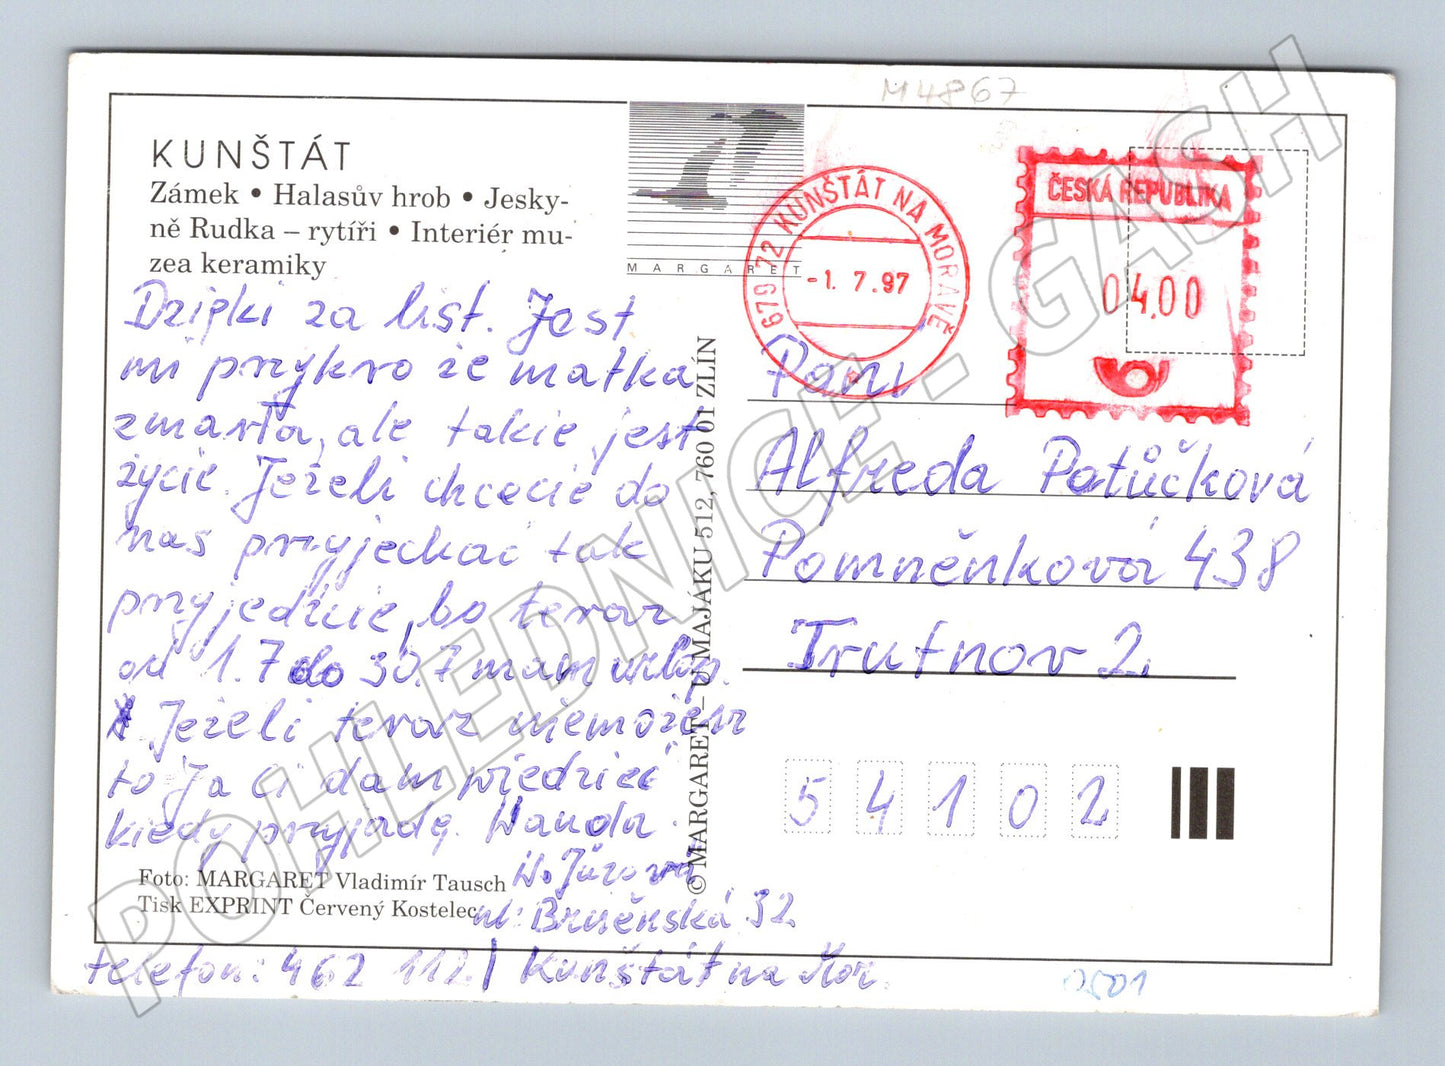 M4867
KUNŠTÁT
Zámek • Halasův hrob • Jesky-
ně Rudka – rytíři • Interiér mu-
zea keramiky
MARGARET
679 72 KUNŠTÁT NA MORAVĚ
-1. 7.97
ČESKÁ REPUBLIKA
04.00
Dzięki za list. Jest
mi przykro że matka
zmarła, ale takie jest
życie. Jeżeli chcecie do
nas przyjechać tak
przyjedźcie, bo teraz
od 1.7 do 30.7 mam urlop.
Jeżeli teraz niemożesz
to Ja Ci dam wiedzieć
kiedy przyjadę. Wanda.
W. Jůzová
ul: Brněnská 32
telefon: 462 112 / Kunštát na Mor.
Foto: MARGARET Vladimír Tausch
Tisk EXPRINT Červený Kostelec
© MARGARET – U MAJÁKU 512, 760 01 ZLÍN
Paní
Alfreda Patůčková
Pomněnková 438
Trutnov 2.
54102
0501
POHLEDNICE - GASH